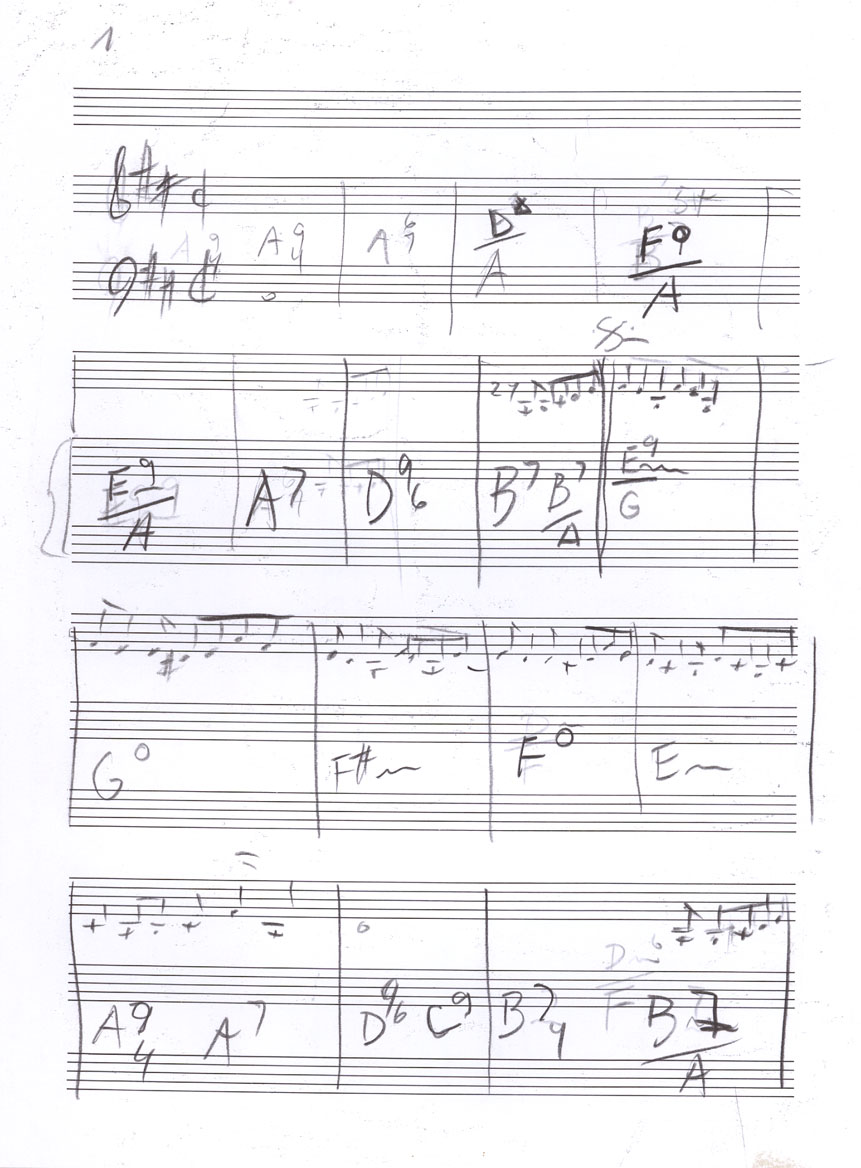 1
A 9 4 A 6 D F 9
A A
E 9 A 7 D 9 6 B 7 B 7 E 9 m
A A G
G o F#m F o Em
A 9 4 A 7 D 9 6 C 9 B 7 9 B 7
A